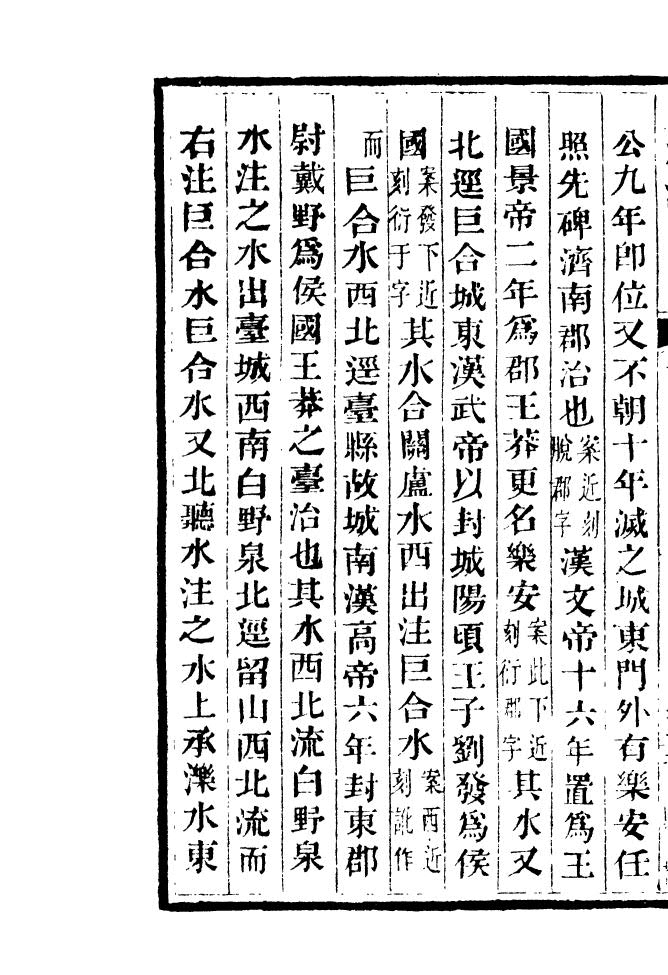 公九年卽位又不朝十年滅之城東門外有樂安任
照先碑濟南郡治也案近刻脫郡字漢文帝十六年置爲王
國景帝二年爲郡王莽更名樂安案此下近刻衍郡字其水又
北逕巨合城東漢武帝以封城陽頃王子劉發爲侯
國案發下近刻衍于字其水合關盧水西出注巨合水案西近刻訛作
而巨合水西北逕臺縣故城南漢高帝六年封東郡
尉戴野爲侯國王莽之臺治也其水西北流白野泉
水注之水出臺城西南白野泉北逕留山西北流而
右注巨合水巨合水又北聽水注之水上承濼水東